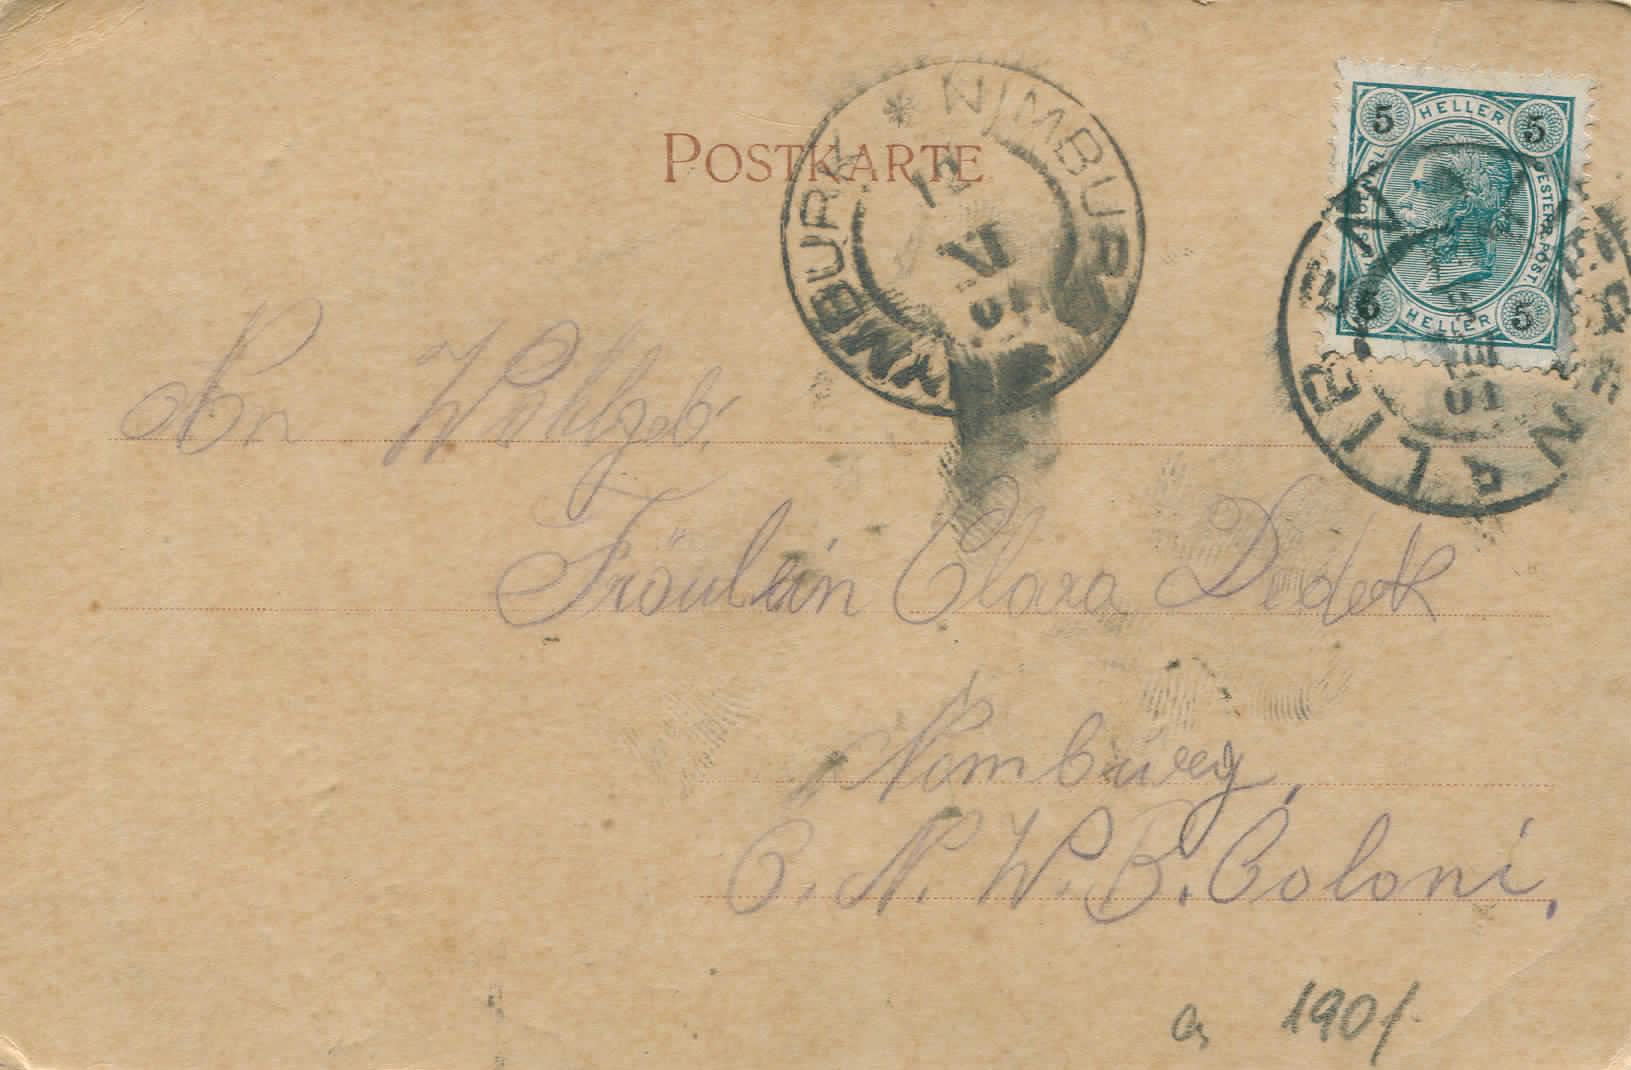 POSTKARTE
NIMBURK * NYMBURK
VI
01
5 HELLER 5
OESTERR. POST
5 HELLER 5
01
Wohlgeb.
Fräulein Clara Dedek
Nimburg,
O. N. W. B. Coloni,
1901